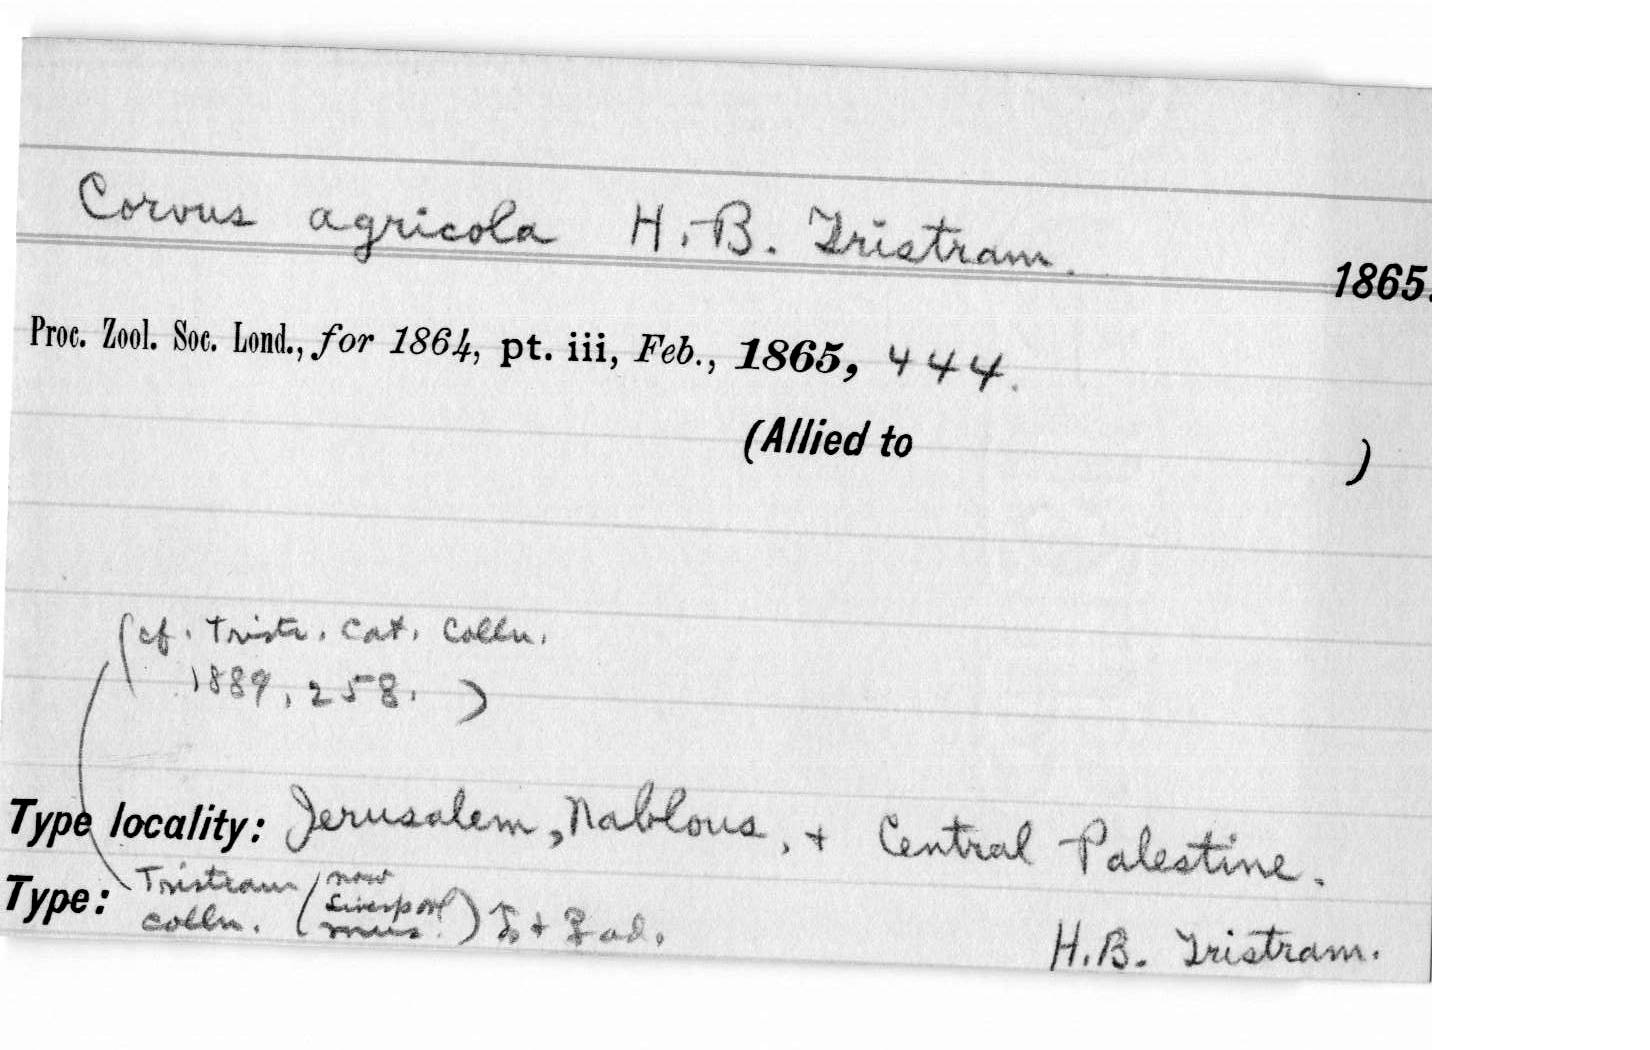 Corvus agricola H. B. Tristram.
1865.
Proc. Zool. Soc. Lond., for 1864, pt. iii, Feb., 1865, 444.
(Allied to )
(cf. Tristr. Cat. Colln.
1889, 258.)
Type locality: Jerusalem, Nablous, + Central Palestine.
Type: Tristram colln. (now Liverpool mus.) ♂ + ♀ ad.
H. B. Tristram.